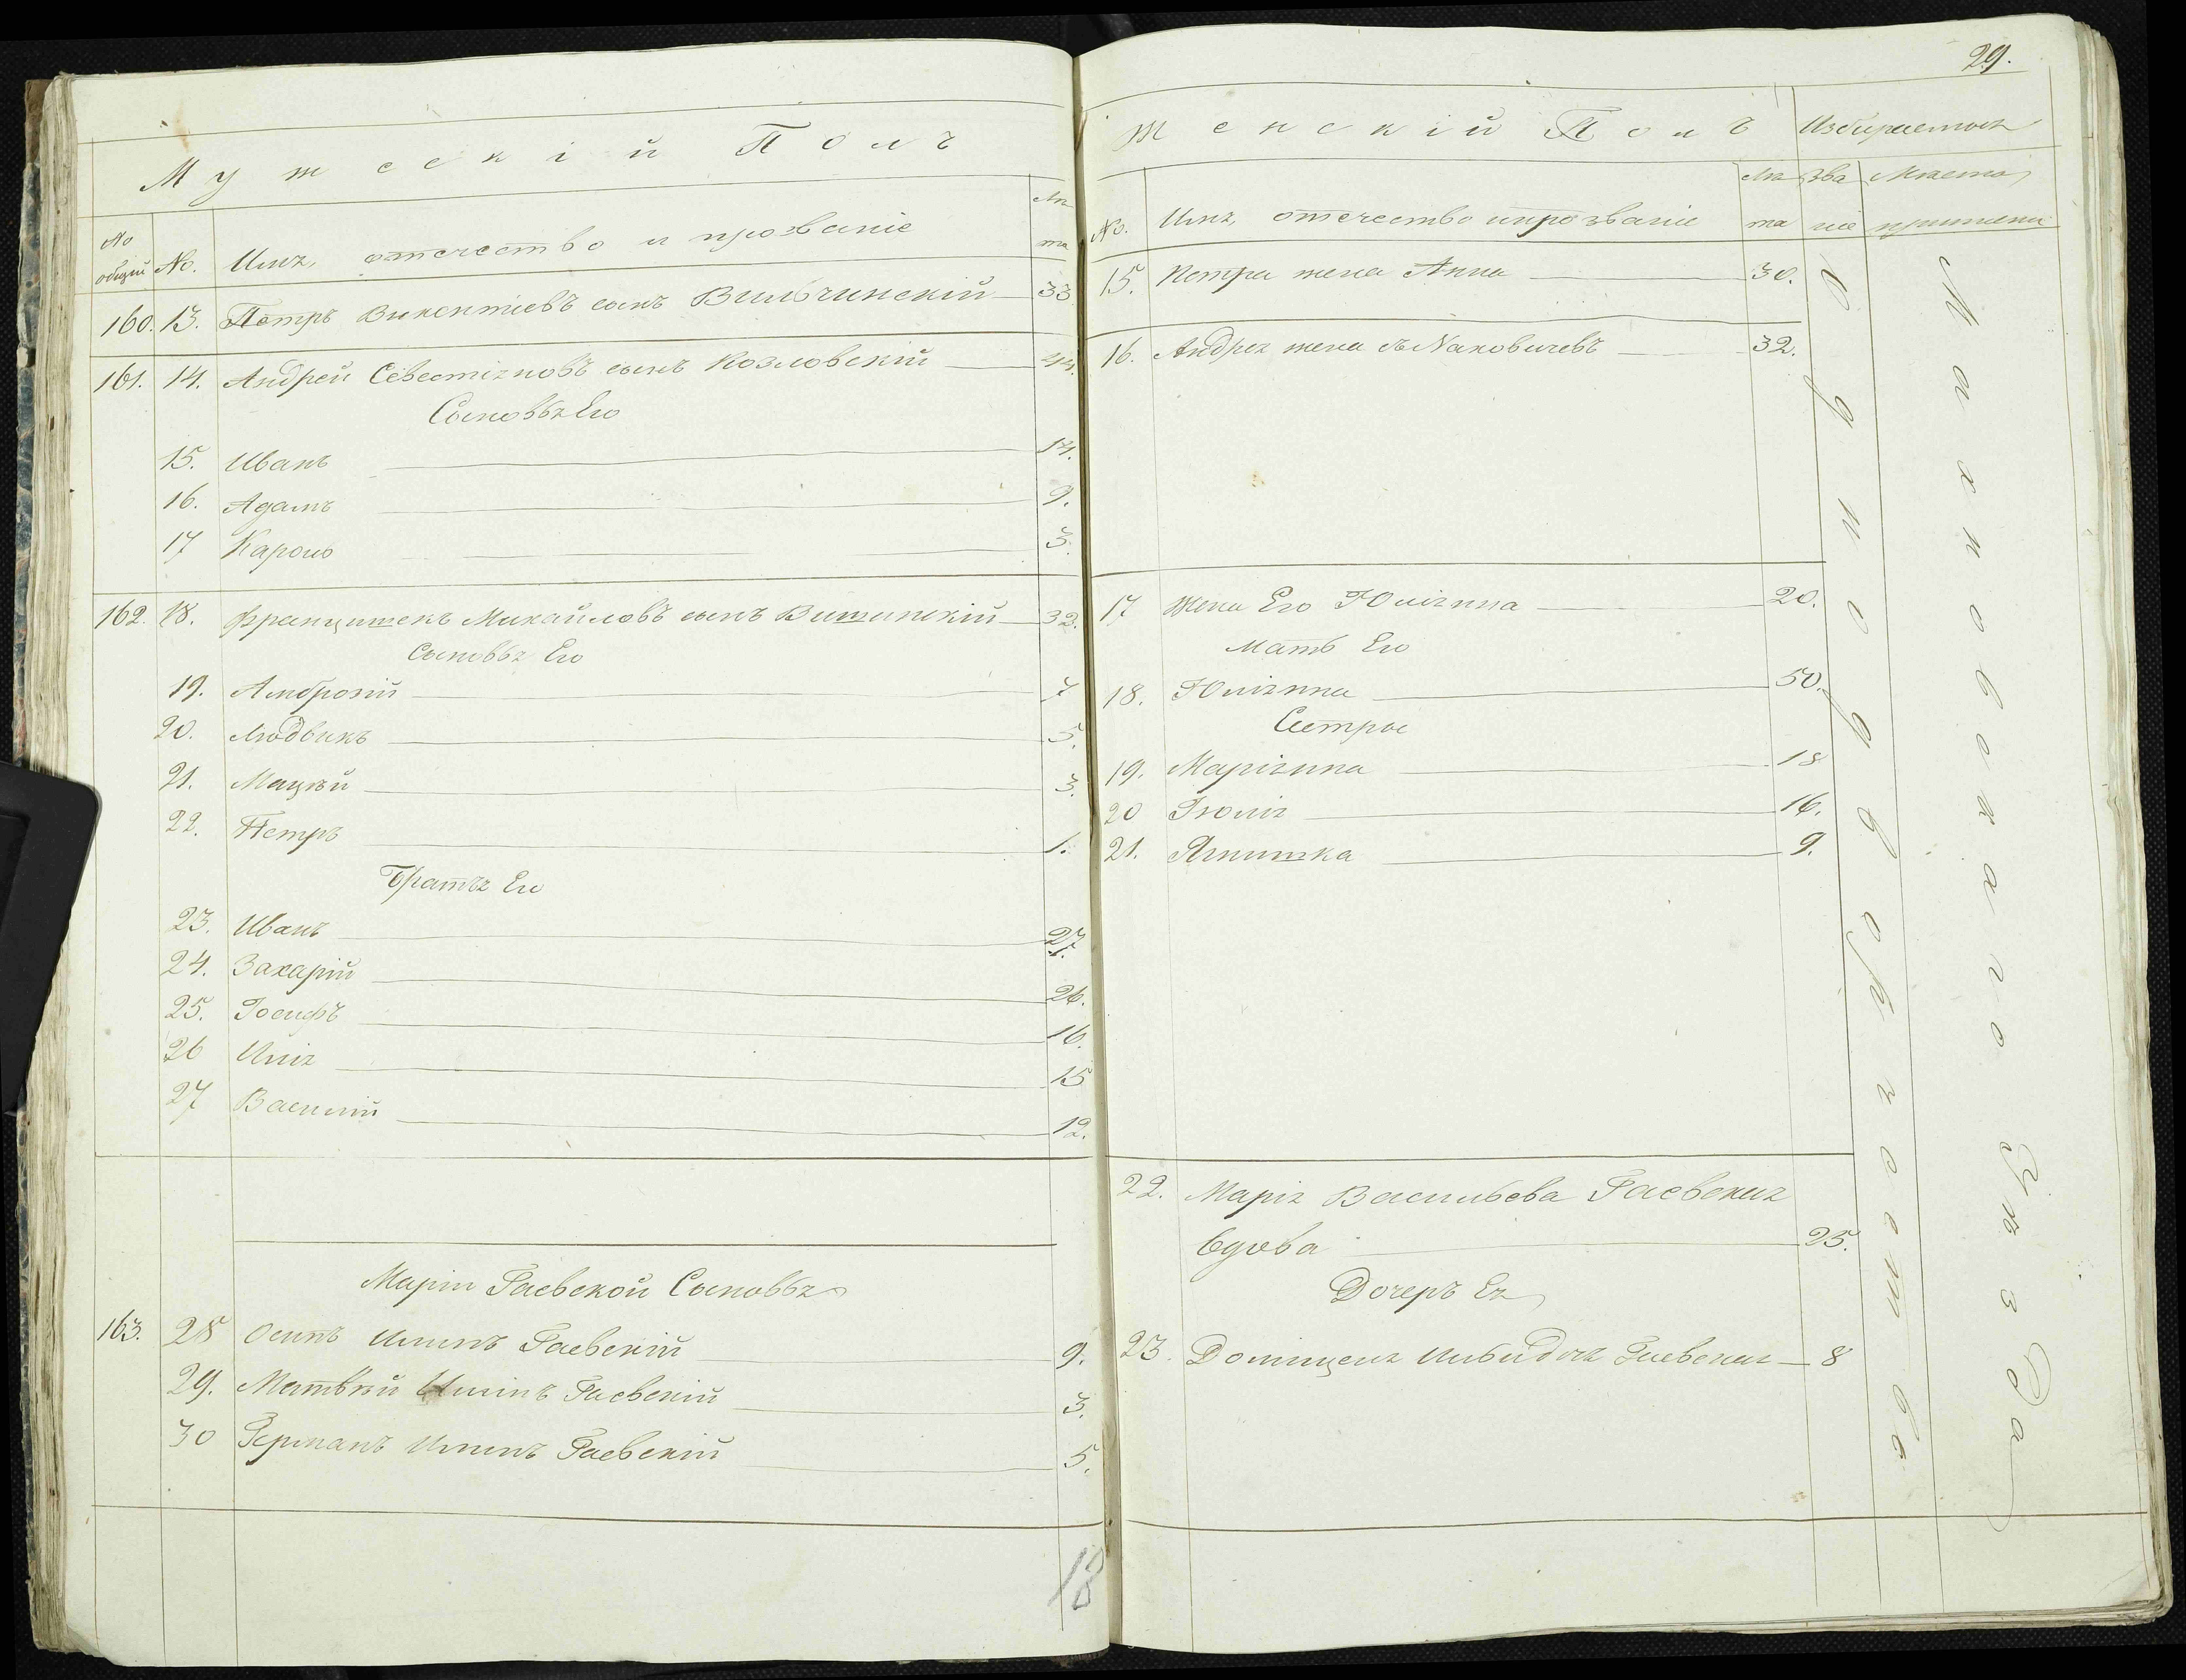 Мужескій Полъ
№ общій
№.
Имя, отечество и прозваніе
Лѣта
160. 13. Петръ Викентіевъ сынъ Вильчинскій 33
161. 14. Андрей Севестіяновъ сынъ Козловскій 44.
Сыновья Его
15. Иванъ 14.
16. Адамъ 9.
17 Кароль 3.
162. 18. Францишекъ Михайловъ сынъ Вишинскій 32.
Сыновья Его
19. Амброзій 7
20. Людвикъ 5.
21. Мацѣй 3.
22. Петръ 1.
Братья Его
23. Иванъ 27.
24. Захарій 26.
25. Іосифъ 16.
26 Илія 15
27 Василій 12.
Маріи Гаевской Сыновья
163. 28 Осипъ Илинъ Гаевскій 9.
29. Матвѣй Иліинъ Гаевскій 3.
30 Германъ Илинъ Гаевскій 5.
18
29.
Женскій Полъ
Избираемыя
№.
Имя, отечество ипрозваніе
Лѣта
Званіе
Мѣсто
15. Петра жена Анна 30.
16. Андрея жена съ 32.
17 Жена Его Юліянна 20.
Мать Его
18. Юліянна 50.
Сестры
19. Маріянна 18
20 Іюлія 16.
21. 9.
22. Марія Васильева Гаевская
вдова 25.
Дочерь Ея
23. Гаевская 8
Однодворческое
Махновскаго Уѣзда